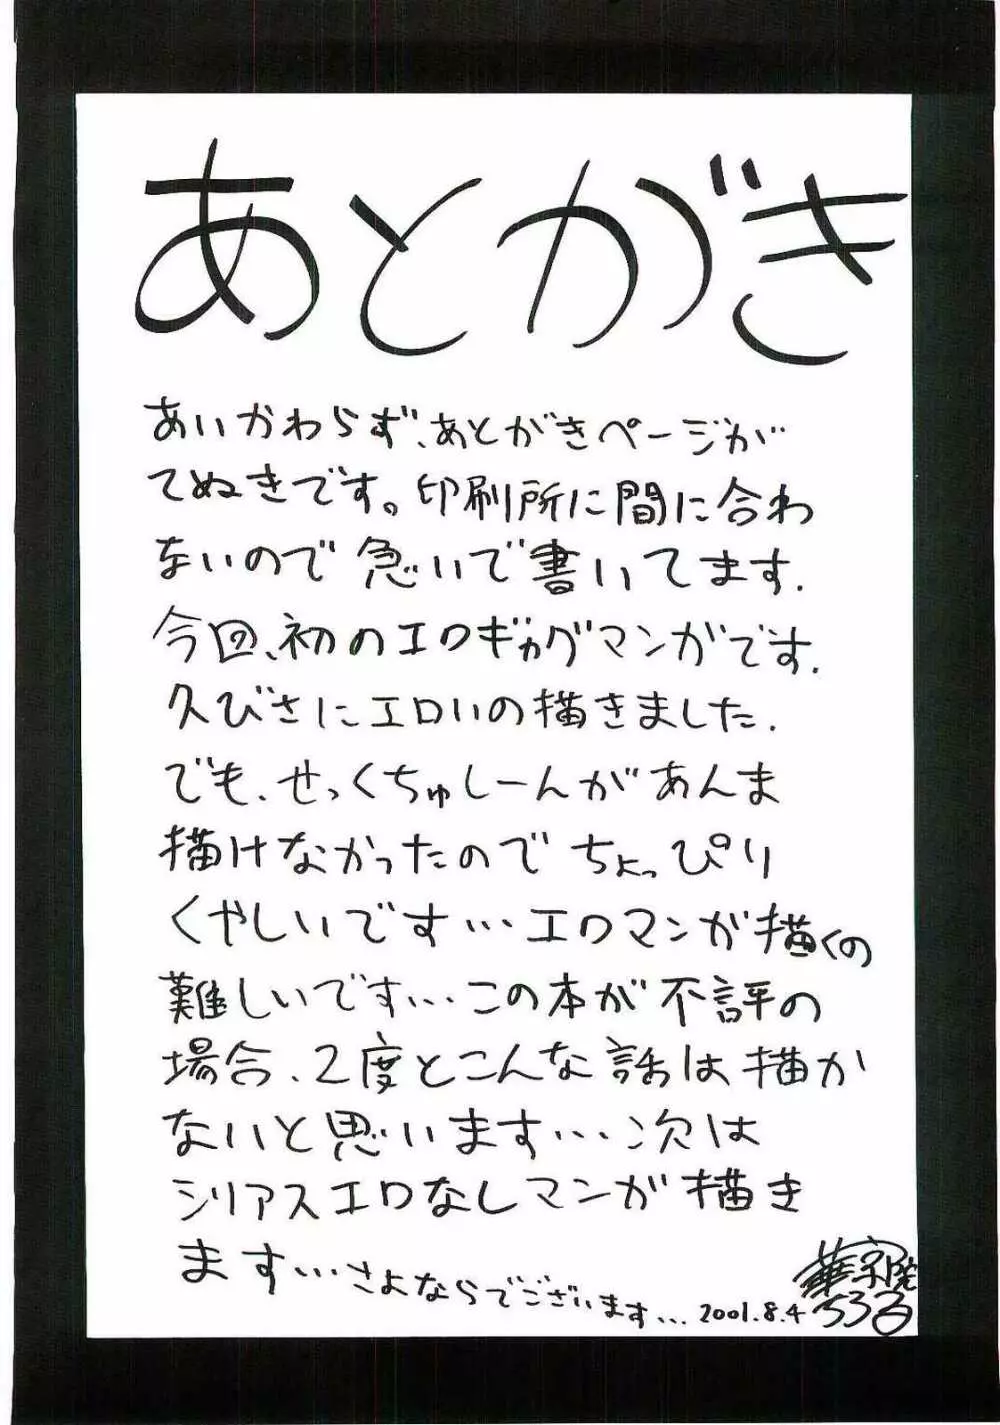 あとがき
あいかわらず、あとがきページが
てぬきです。印刷所に間に合わ
ないので急いで書いてます.
今回、初のエロギャグマンガです.
久びさにエロいの描きました.
でも、せっくちゅしーんがあんま
描けなかったのでちょっぴり
くやしいです…エロマンガ描くの
難しいです…この本が不評の
場合、2度とこんな話は描か
ないと思います…次は
シリアスエロなしマンガ描き
ます…さよならでございます…2001.8.4